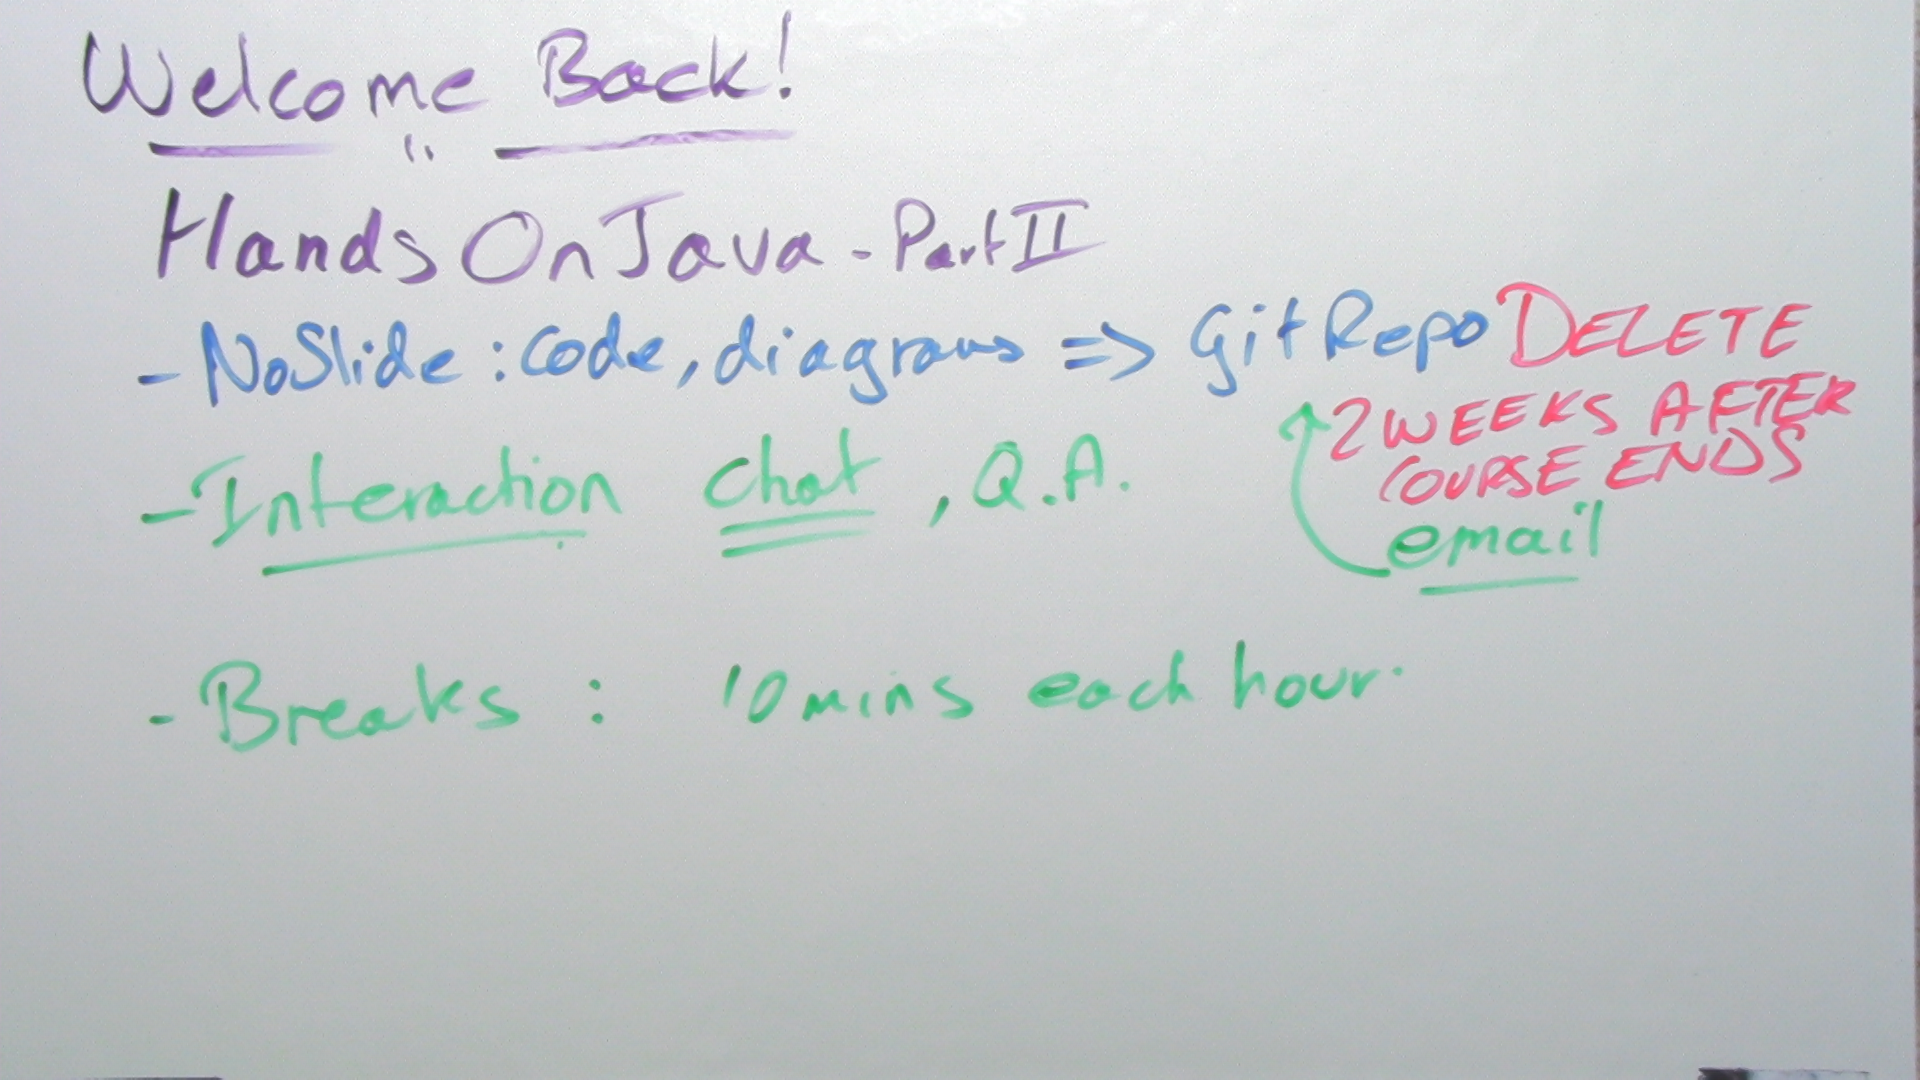 Welcome Back!
Hands On Java - Part II
- No Slide : Code, diagrams => Git Repo DELETE
2 WEEKS AFTER
COURSE ENDS
- Interaction chat , Q.A.
email
- Breaks : 10 mins each hour.